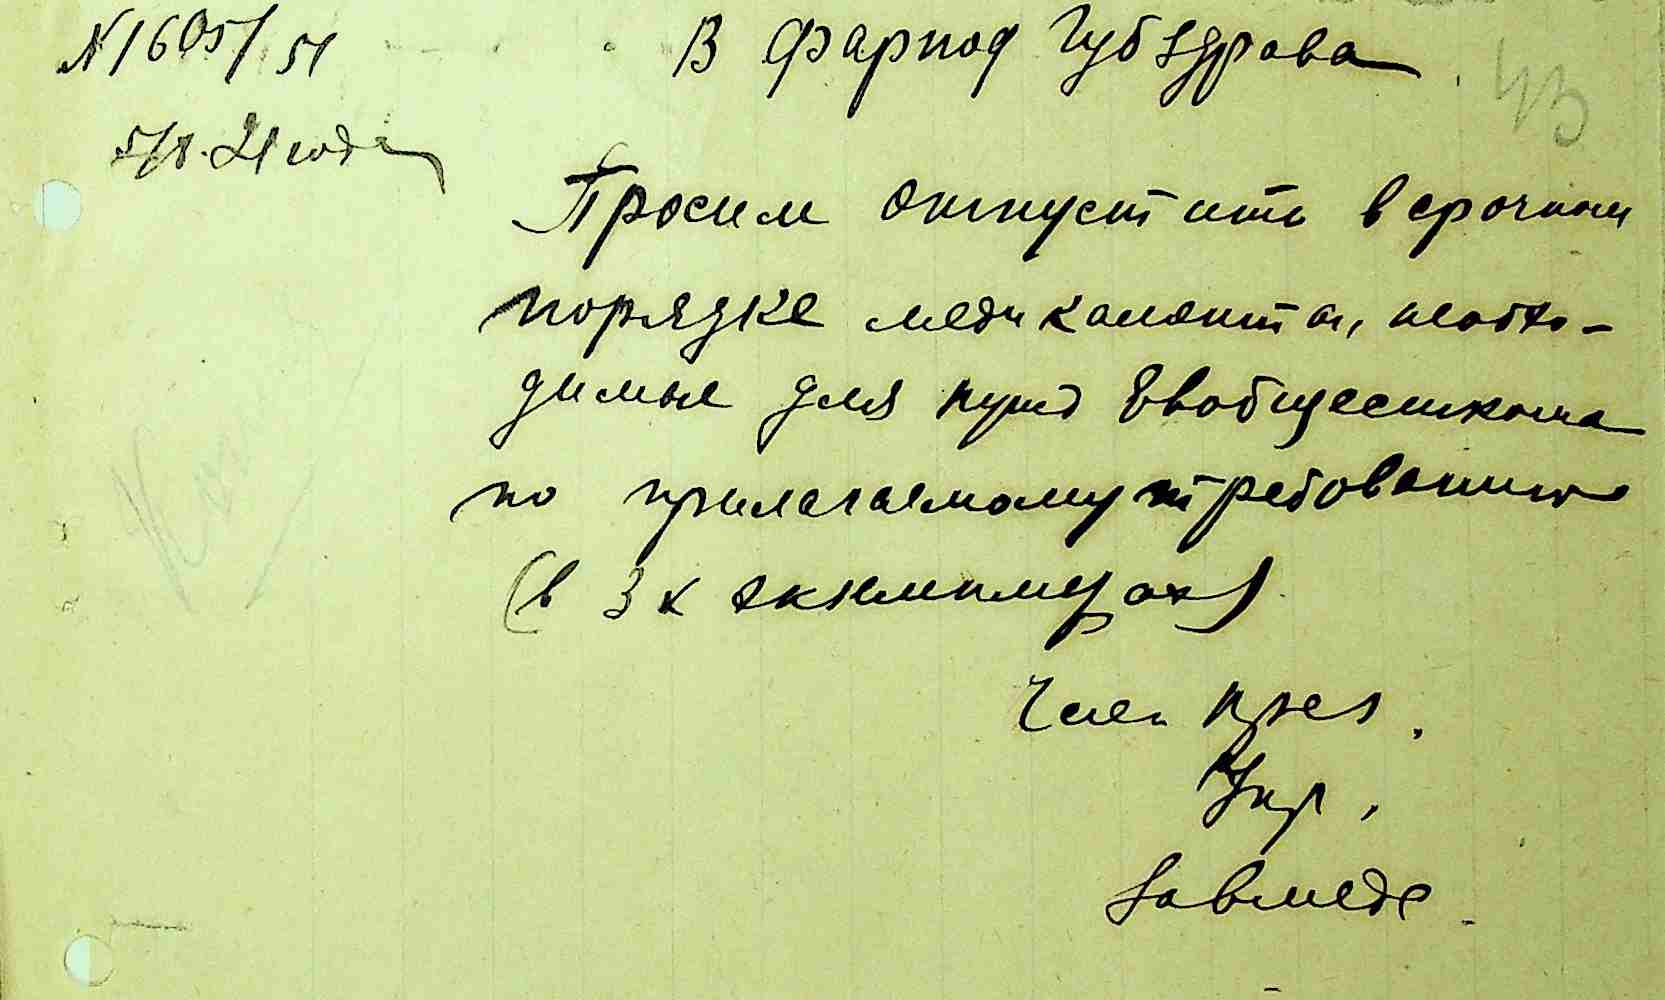 №1605/51
В Фарпод Губздрава
5/X. 21 года
Просим отпустить в срочном
порядке медикаменты, необхо-
димые для нужд Евобщесткома
по прилагаемому требованию
(в 3х экземплярах)
Член през.
Упр.
Завмед